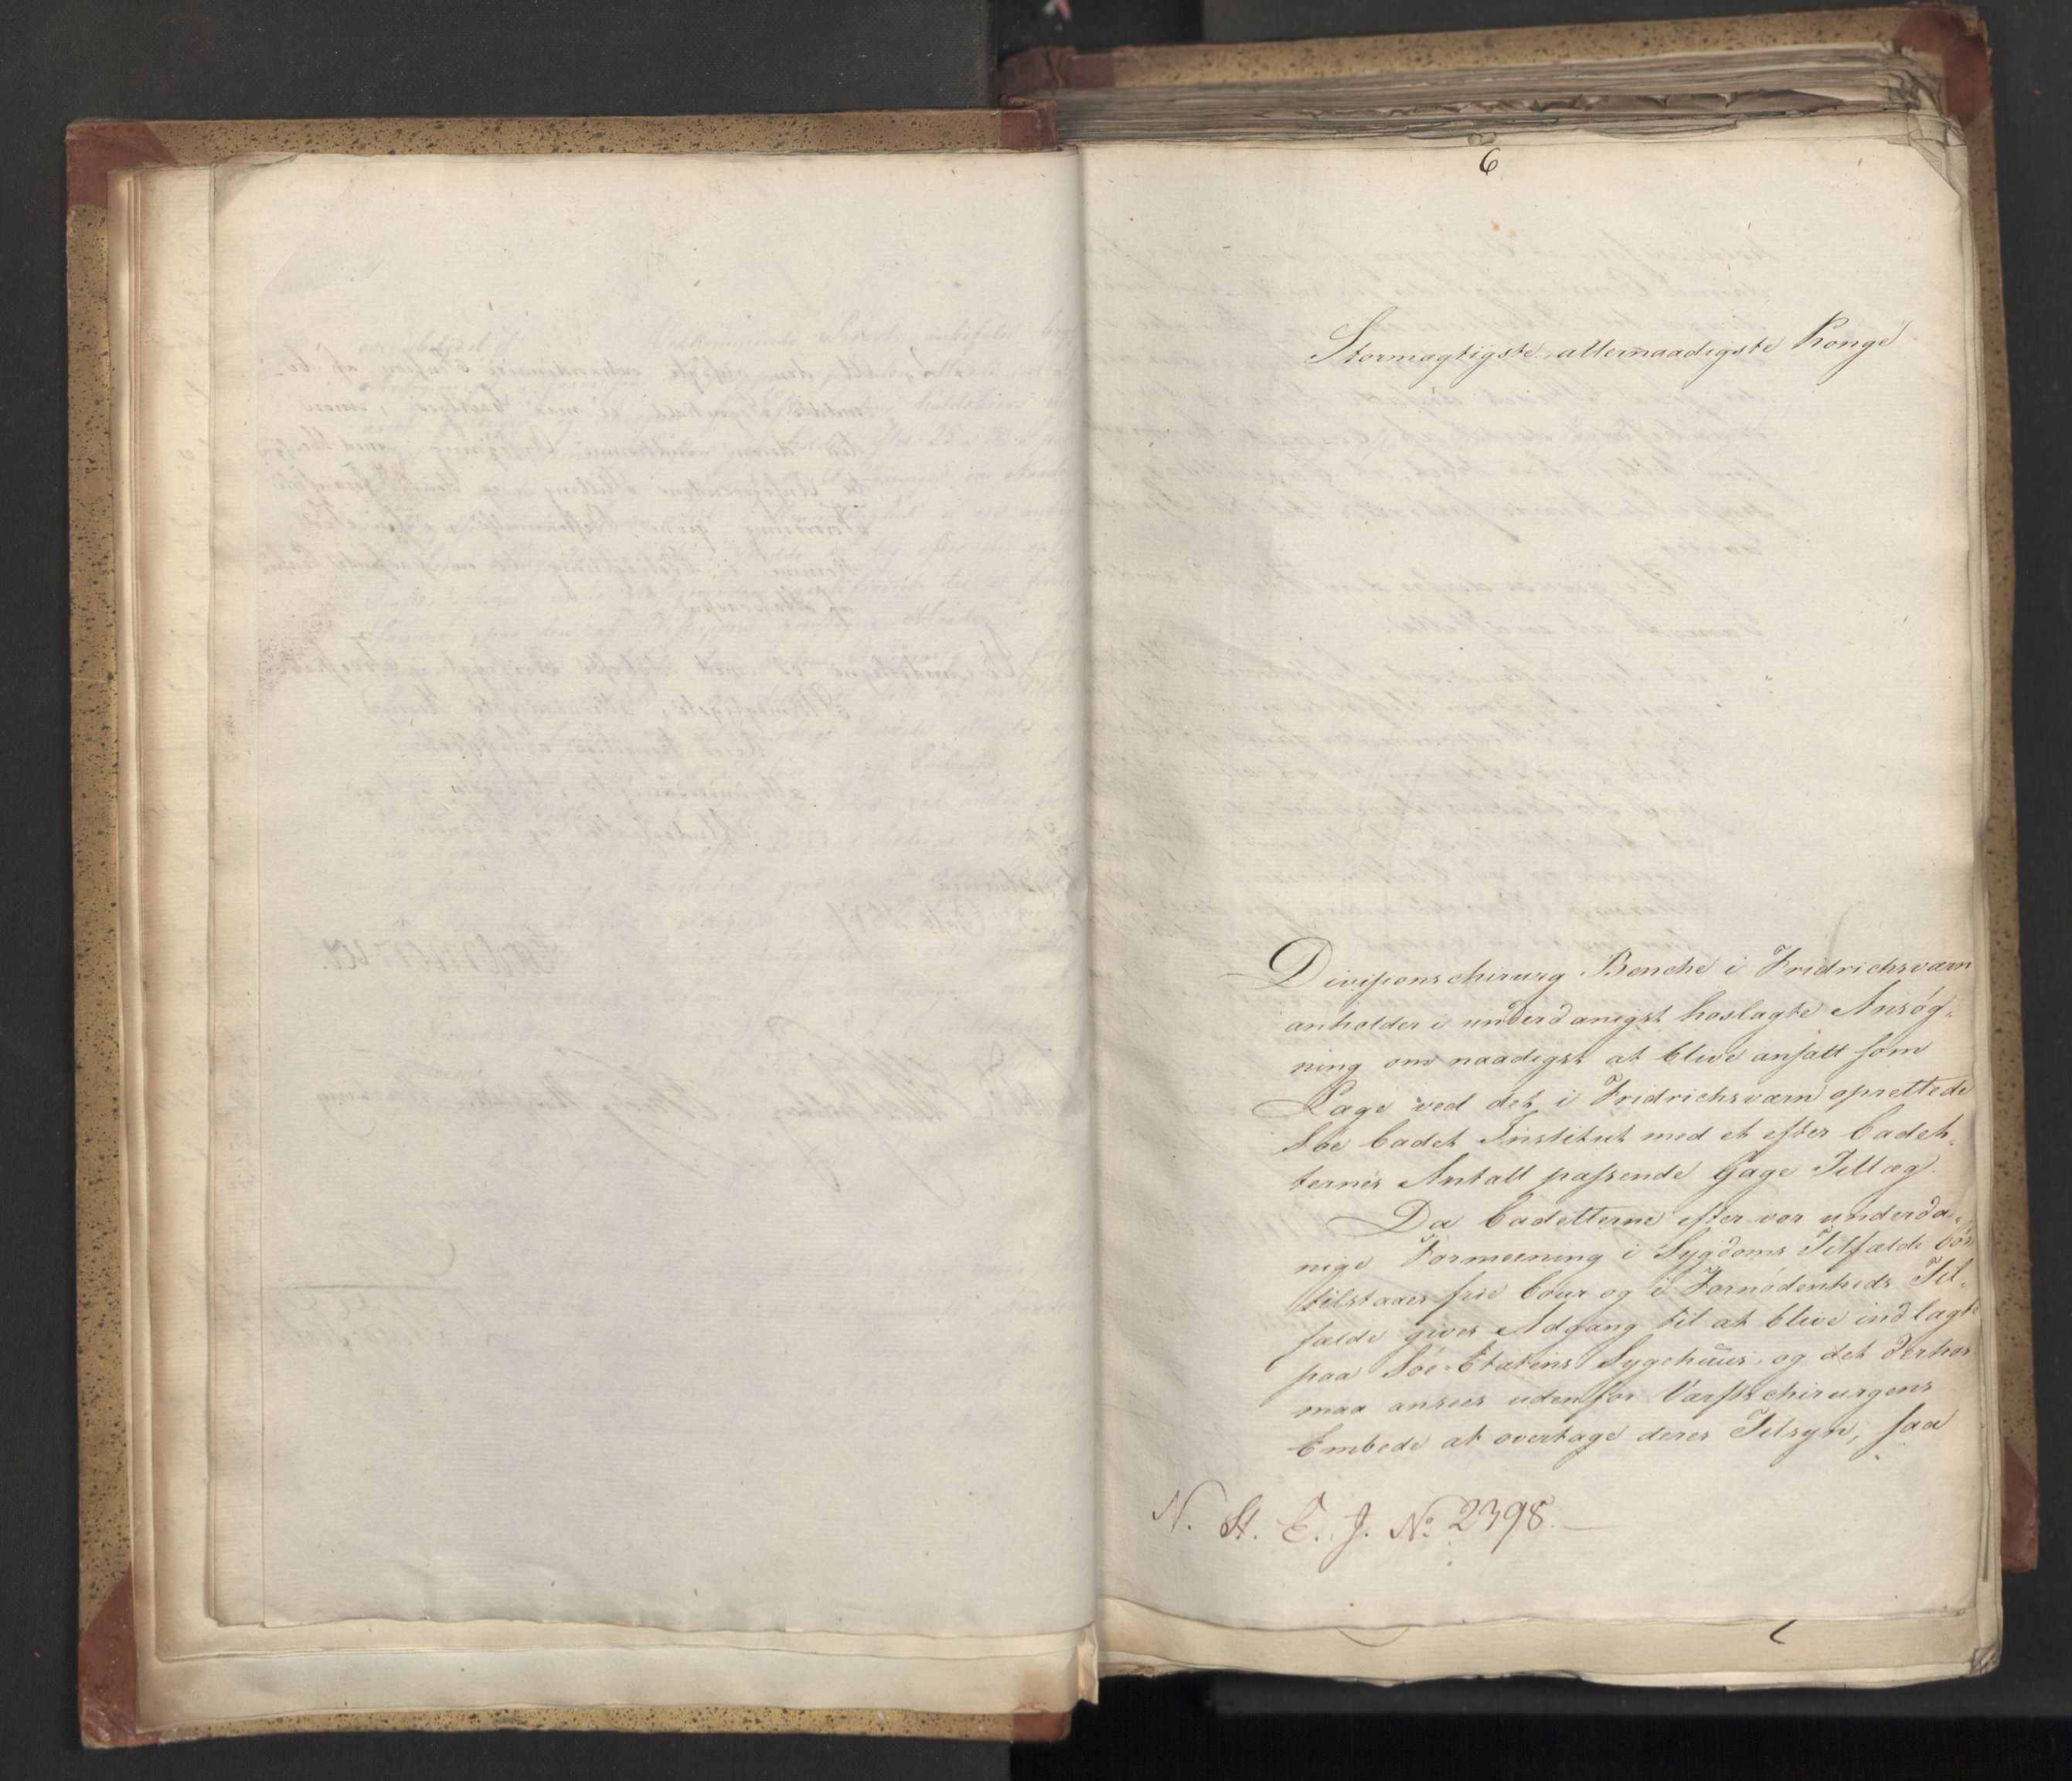 6
Stormægtigste, allernaadigste Konge
Divisionschirurg Benche i Fridrichsværn
anholder i underdanigst hoslagte Ansøg-
ning om naadigst at blive ansatt som
Læge ved det i Fridrichsværn oprettede
Søe Cadet Institut med et efter Cadet-
ternes Antall passende Gage Tillæg.
Da Cadetterne efter vor underda-
nige Formeening i Sygdoms Tilfælde bør
tilstaaes frie Cour og i Fornødenheds Til-
fælde gives Adgang til at blive indlagte
paa Søe-Etatens Sygehuus, og det derhos
maa ansees udenfor Værftschirurgens
Embede at overtage deres Tilsyn, saa
N. St. C. J. No 2398.